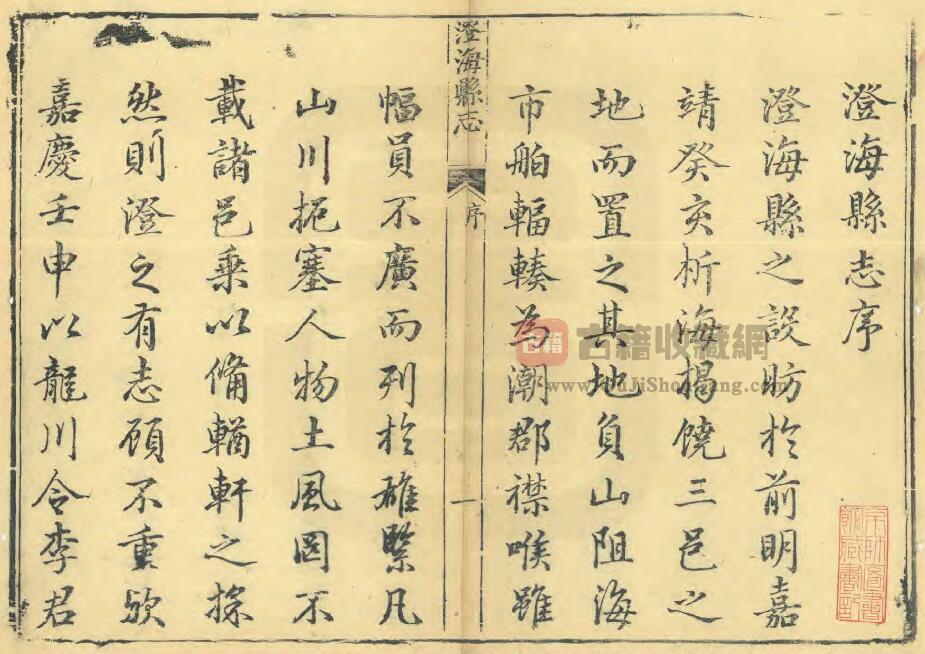 澄海縣志序
澄海縣之設昉於前明嘉
靖癸亥析海揭饒三邑之
地而置之其地負山阻海
市舶輻輳為潮郡襟喉雖
澄海縣志
序
一
幅員不廣而列於雄緊凡
山川扼塞人物土風罔不
載諸邑乘以備輶軒之採
然則澄之有志顧不重歟
嘉慶壬申以龍川令李君
古籍
古籍收藏網
www.GuJiShouCang.com